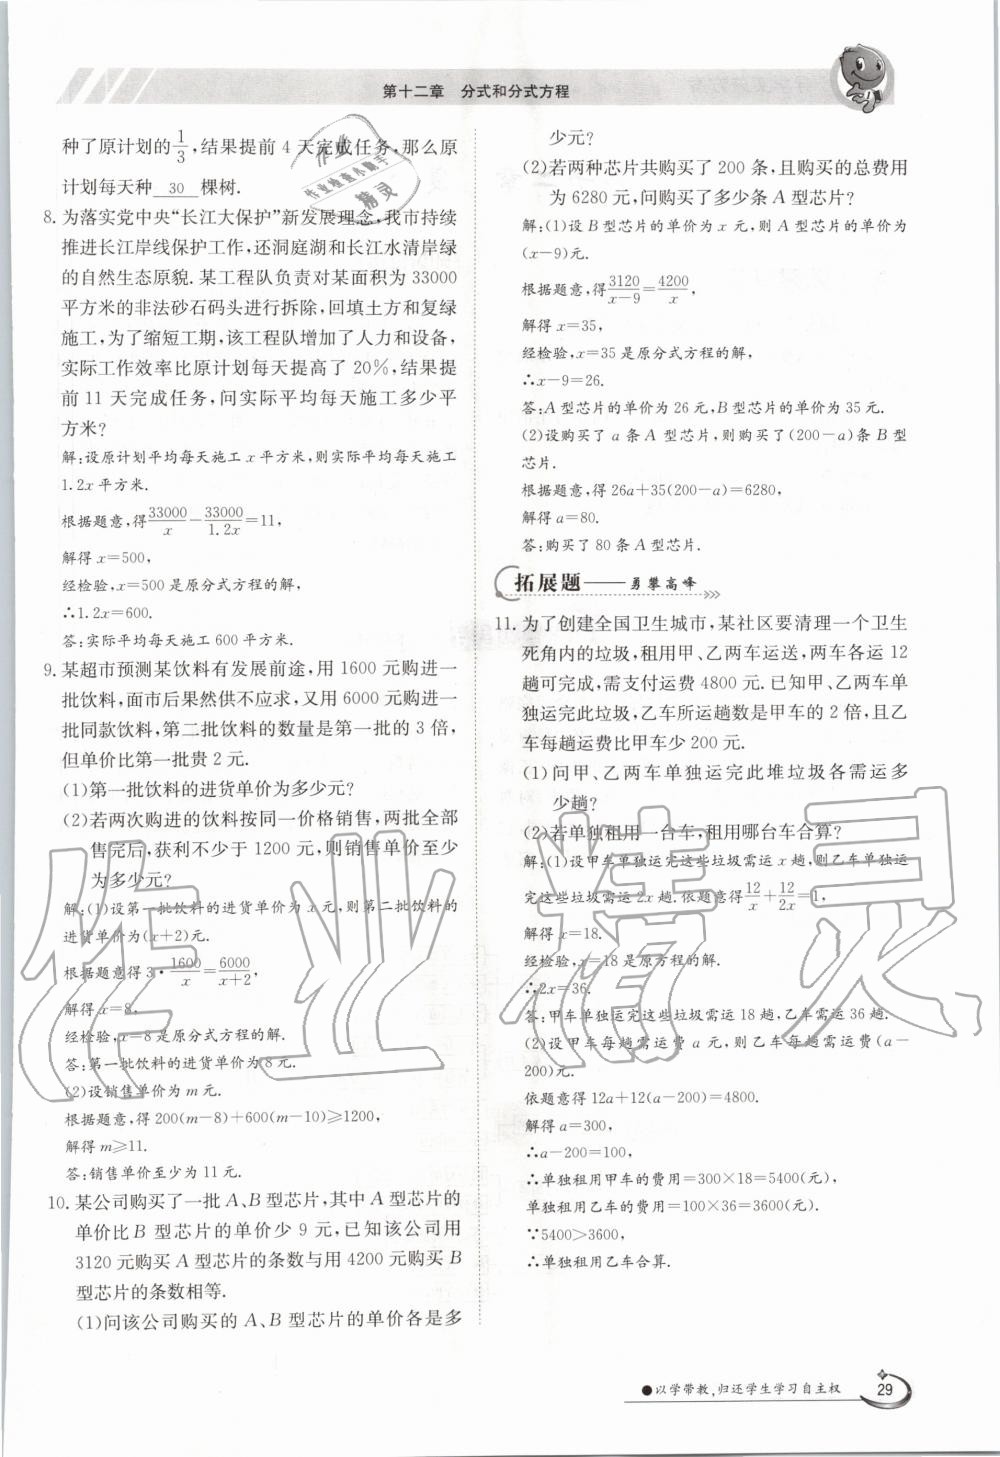 第十二章 分式和分式方程
种了原计划的1/3,结果提前 4 天完成任务,那么原
计划每天种 30 棵树.
8. 为落实党中央“长江大保护”新发展理念,我市持续
推进长江岸线保护工作,还洞庭湖和长江水清岸绿
的自然生态原貌.某工程队负责对某面积为 33000
平方米的非法砂石码头进行拆除,回填土方和复绿
施工,为了缩短工期,该工程队增加了人力和设备,
实际工作效率比原计划每天提高了 20%,结果提
前 11 天完成任务,问实际平均每天施工多少平
方米?
解:设原计划平均每天施工 x 平方米,则实际平均每天施工
1.2x 平方米.
根据题意,得33000/x−33000/1.2x=11,
解得 x=500,
经检验,x=500 是原分式方程的解,
∴1.2x=600.
答:实际平均每天施工 600 平方米.
9. 某超市预测某饮料有发展前途,用 1600 元购进一
批饮料,面市后果然供不应求,又用 6000 元购进一
批同款饮料,第二批饮料的数量是第一批的 3 倍,
但单价比第一批贵 2 元.
(1)第一批饮料的进货单价为多少元?
(2)若两次购进的饮料按同一价格销售,两批全部
售完后,获利不少于 1200 元,则销售单价至少
为多少元?
解:(1)设第一批饮料的进货单价为 x 元,则第二批饮料的
进货单价为(x+2)元.
根据题意得 3·1600/x=6000/(x+2),
解得 x=8,
经检验,x=8 是原分式方程的解,
答:第一批饮料的进货单价为 8 元.
(2)设销售单价为 m 元.
根据题意,得 200(m−8)+600(m−10)≥1200,
解得 m≥11.
答:销售单价至少为 11 元.
10. 某公司购买了一批 A、B 型芯片,其中 A 型芯片的
单价比 B 型芯片的单价少 9 元,已知该公司用
3120 元购买 A 型芯片的条数与用 4200 元购买 B
型芯片的条数相等.
(1)问该公司购买的 A、B 型芯片的单价各是多
少元?
(2)若两种芯片共购买了 200 条,且购买的总费用
为 6280 元,问购买了多少条 A 型芯片?
解:(1)设 B 型芯片的单价为 x 元,则 A 型芯片的单价为
(x−9)元.
根据题意,得3120/(x−9)=4200/x,
解得 x=35,
经检验,x=35 是原分式方程的解,
∴x−9=26.
答:A 型芯片的单价为 26 元,B 型芯片的单价为 35 元.
(2)设购买了 a 条 A 型芯片,则购买了(200−a)条 B 型
芯片.
根据题意,得 26a+35(200−a)=6280,
解得 a=80.
答:购买了 80 条 A 型芯片.
拓展题——勇攀高峰
11. 为了创建全国卫生城市,某社区要清理一个卫生
死角内的垃圾,租用甲、乙两车运送,两车各运 12
趟可完成,需支付运费 4800 元.已知甲、乙两车单
独运完此垃圾,乙车所运趟数是甲车的 2 倍,且乙
车每趟运费比甲车少 200 元.
(1)问甲、乙两车单独运完此堆垃圾各需运多
少趟?
(2)若单独租用一台车,租用哪台车合算?
解:(1)设甲车单独运完这些垃圾需运 x 趟,则乙车单独运
完这些垃圾需运 2x 趟.依题意得12/x+12/2x=1,
解得 x=18.
经检验,x=18 是原方程的解.
∴2x=36.
答:甲车单独运完这些垃圾需运 18 趟,乙车需运 36 趟.
(2)设甲车每趟需运费 a 元,则乙车每趟需运费(a−
200)元.
依题意得 12a+12(a−200)=4800.
解得 a=300,
∴a−200=100,
∴单独租用甲车的费用=300×18=5400(元),
单独租用乙车的费用=100×36=3600(元).
∵5400>3600,
∴单独租用乙车合算.
●以学带教,归还学生学习自主权
29
作业精灵
作业
作业检查小助手
精灵